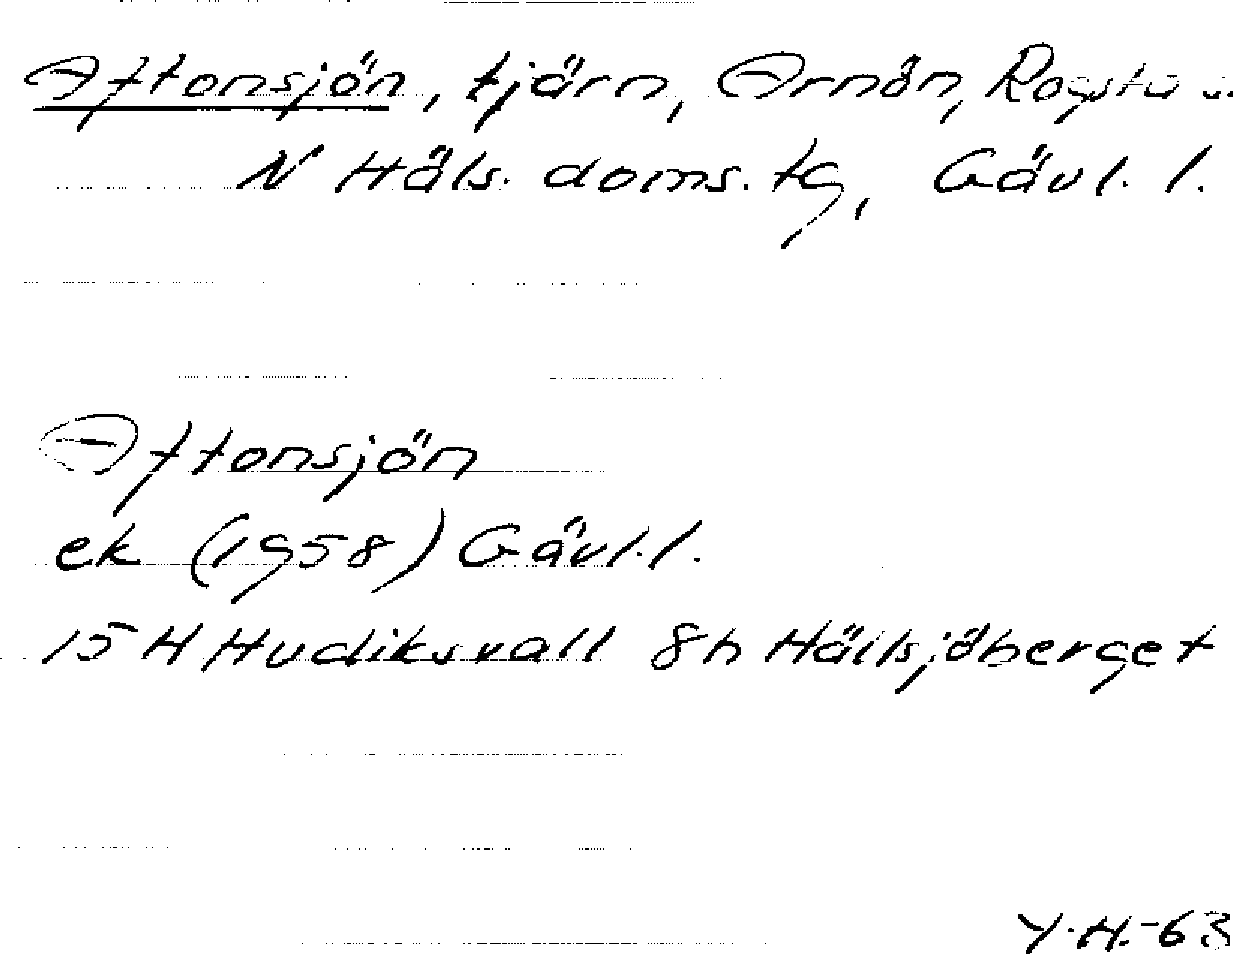 Aftonsjön, tjärn, Arnön, Rogsta s.
N Häls. doms. tg, Gävl. l.
Aftonsjön
ek (1958) Gävl. l.
15 H Hudiksvall 8h Hällsjöberget
Y.H.-63